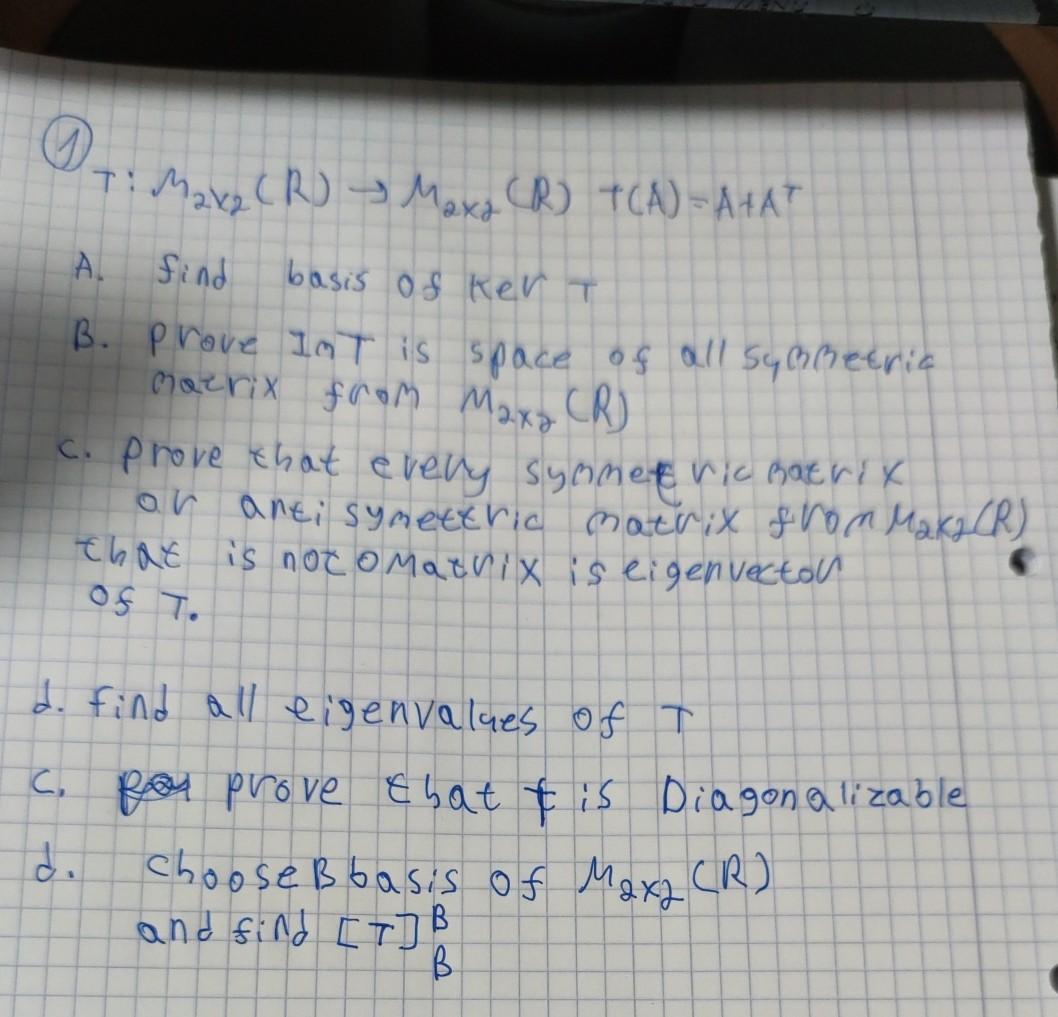 ①
T: M2x2(R) → M2x2(R) T(A)=A+Aᵀ
A. find basis of Ker T
B. prove ImT is space of all symmetric
matrix from M2x2(R)
c. prove that every symmetric matrix
or antisymettric matrix from M2x2(R)
that is not 0 Matrix is eigenvector
of T.
d. find all eigenvalues of T
c. prove that T is Diagonalizable
d. choose B basis of M2x2(R)
and find [T]B
B